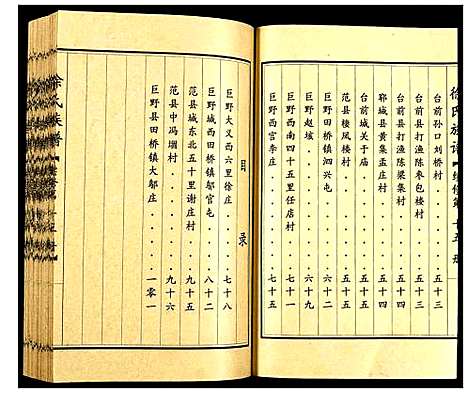 徐氏族谱
续修第十五册
台前孙口刘桥村......五十三
台前县打渔陈枣包楼村....五十三
台前县打渔陈梁集村.....五十四
郓城县黄集孟庄村......五十四
台前城关于庙........五十四
范县楼凤楼村........五十五
巨野西南四十五里任店村...五十七
巨野县田桥镇泗兴屯.....六十二
巨野赵垓..........六十九
巨野西宫李庄........七十五
目录
巨野大义西六里徐庄.....七十八
巨野城西田桥镇邬官屯....八十二
范县城东北五十里谢庄村...九十五
范县中冯堌村........九十六
巨野县田桥镇大邬庄.....一零一
徐氏族谱